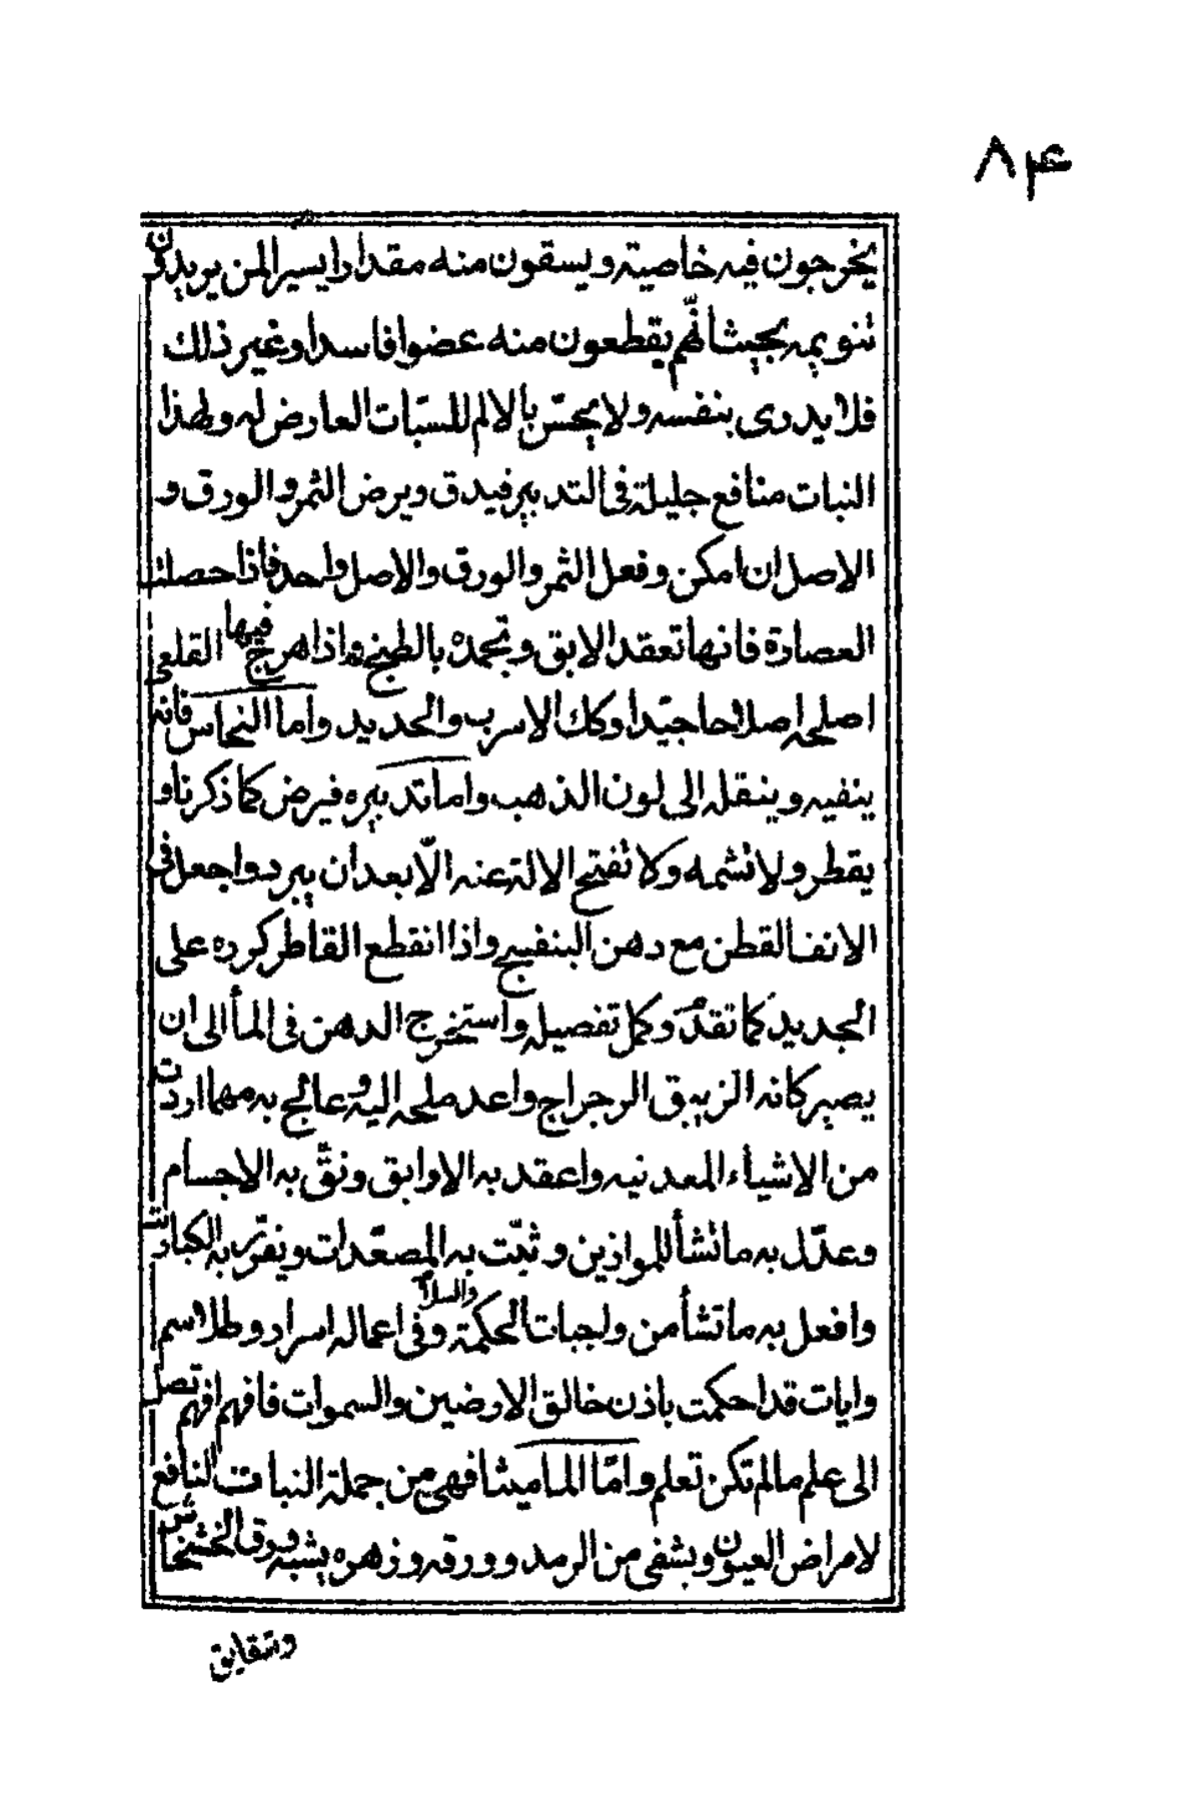 ۸۴
يخرجون فيه خاصيته ويسقون منه مقدارا يسيرا لمن يريدون
تنويمه بحيث انّهم يقطعون منه عضوا فاسدا وغير ذلك
فلا يدرى بنفسه ولا يحسّ بالالم للسبّات العارض له ولهذا
النبات منافع جليلة فى التدبير فيدق ويرض الثمر والورق و
الاصل ان امكن وفعل الثمر والورق والاصل واحد فاذا حصلت
العصارة فانها تعقد الابق وتجمده بالطبخ واذا هرج فيها القلعى
اصلحه اصلاحا جيّدا وكك الاسرب والحديد واما النحاس فانه
ينفيه وينقله الى لون الذهب واما تدبيره فيرض كما ذكرنا و
يقطر ولا تشمه ولا تفتح الالة عنه الّا بعد ان يبرد واجعل فى
الانف القطن مع دهن البنفسج واذا انقطع القاطر كرده على
الجديد كما تقدّم وكمل تفصيله واستخرج الدهن فى المأ الى ان
يصير كانه الزيبق الرجراج واعد ملحه اليه وعالج به مهما اردت
من الاشياء المعدنيه واعقد به الاوابق ونقّ به الاجسام
وعدّل به ما تشأ للموازين وثبّت به المصعّدات ونفرّ به الكباريت
وافعل به ما تشأ من واجبات الحكمة والسلام وفى اعماله اسرار وطلاسم
وايات قد احكمت باذن خالق الارضين والسموات فافهم افهم تصل
الى علم ما لم تكن تعلم وامّا الماميثا فهى من جملة النبات النافع
لامراض العيون ويشفى من الرمد وورقه وزهره يشبه ورق الخشخاش
وشقايق